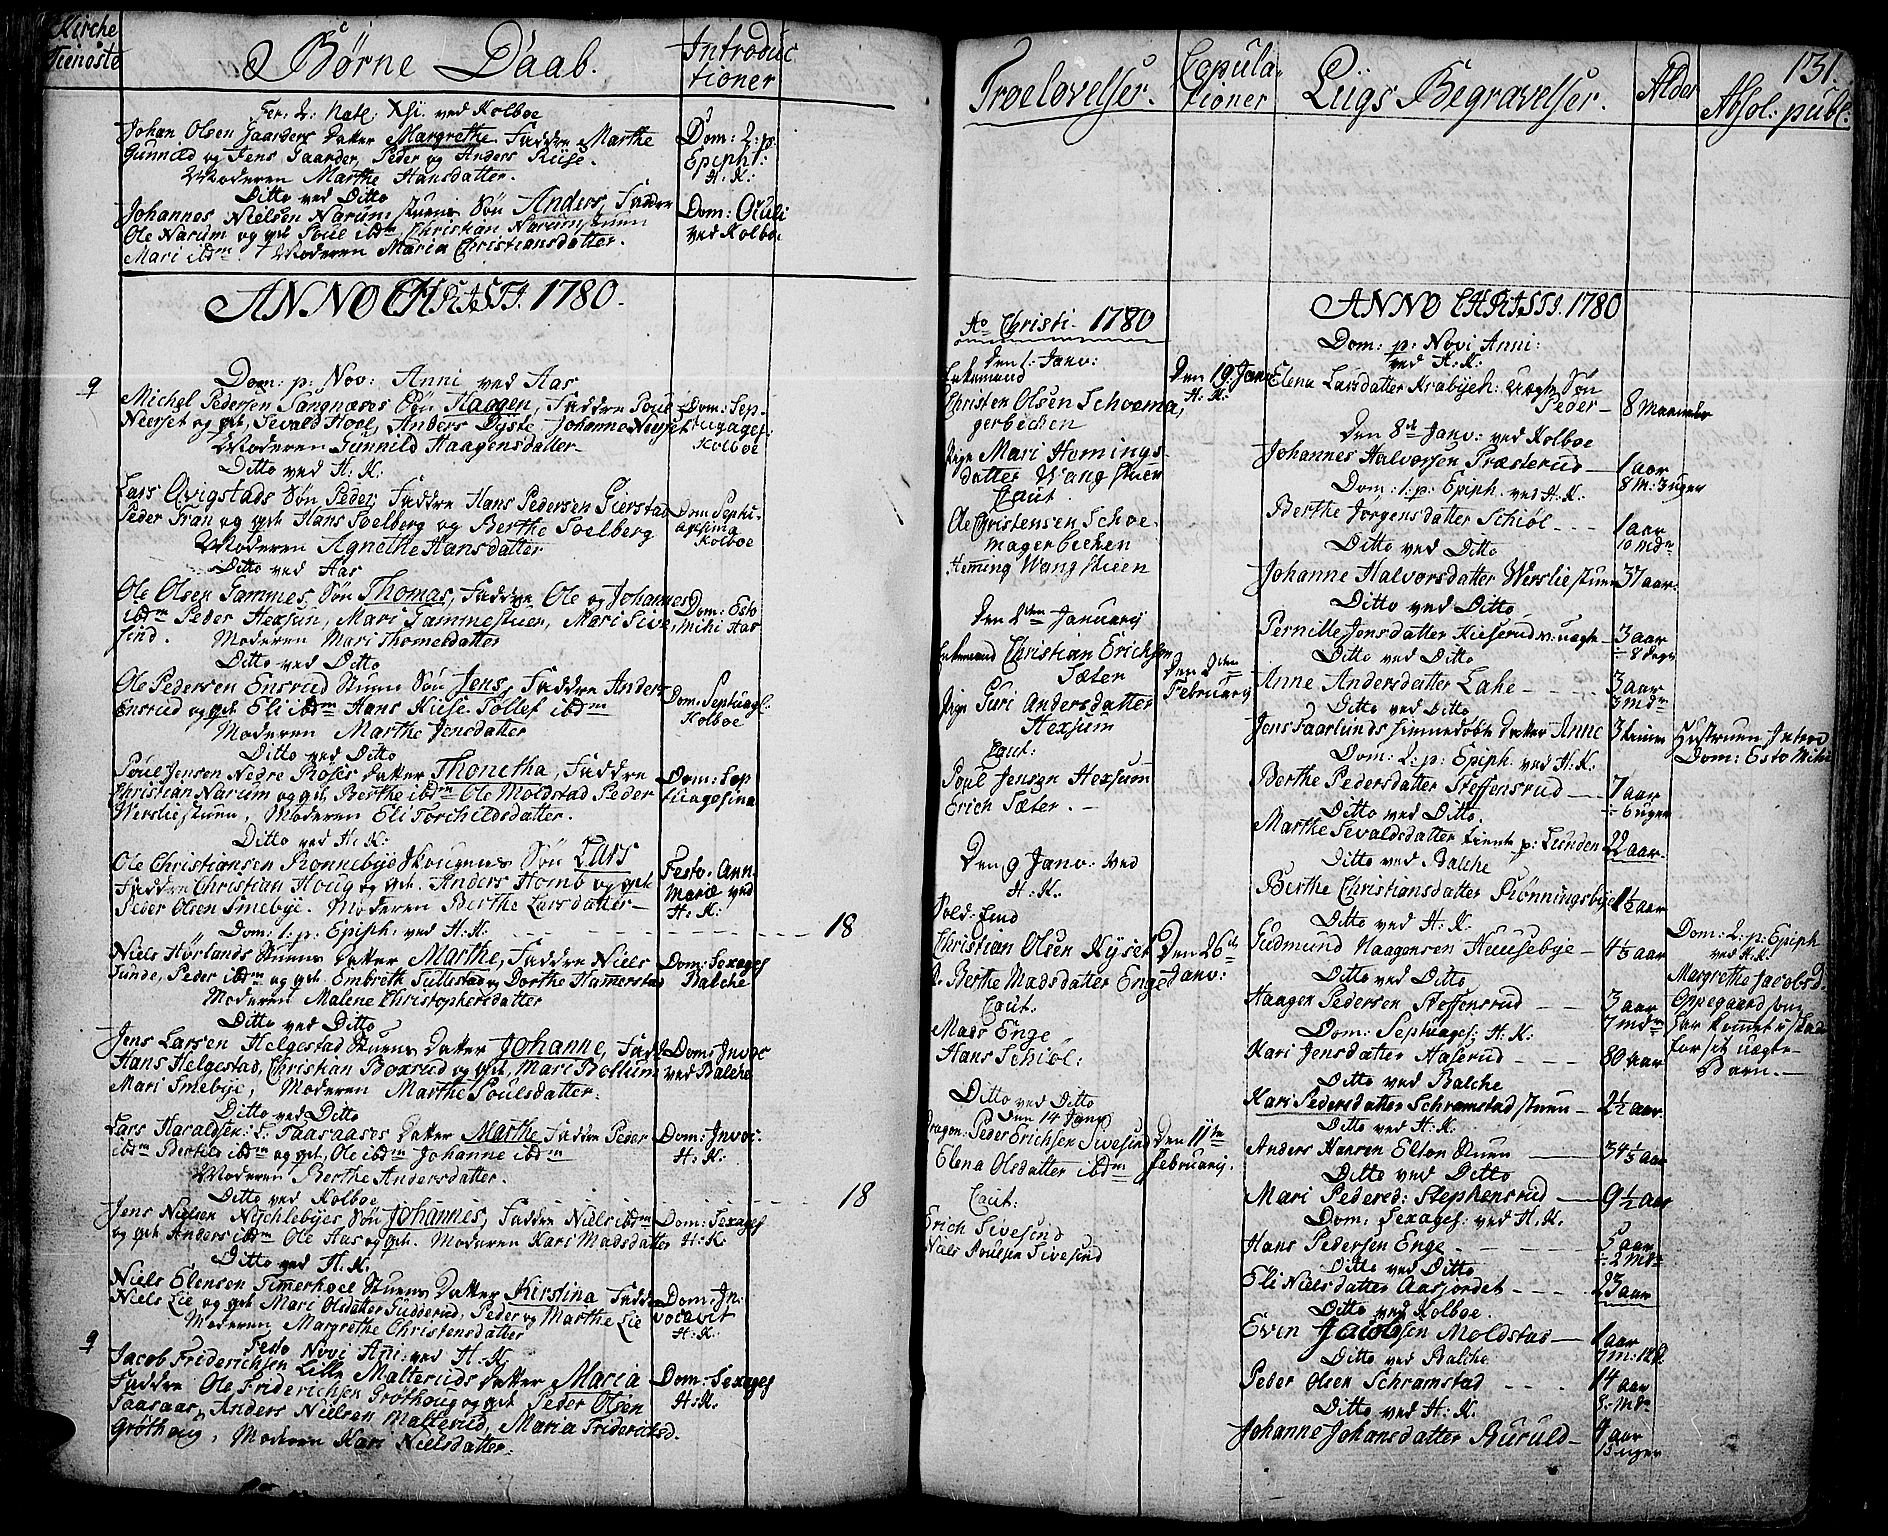 Kirche
Tieneste
Børne Daab.
Introduc
tioner
Fer. 2. Nat. Xsti. ved Kolboe
Johan Olsen Gaarders Datter Margrethe, Faddre Marthe
Gunnild og Jens Gaarder, Peder og Anders Riise.
Moderen Marthe Hansdatter.
Dom: 2. p.
Epiph:
H. K:
Ditto ved Ditto
Johannes Nielsen Narum stuens Søn Anders, Faddre
Ole Narum og qvl Poul ibdm Christian Narumstuen
Mari ibdm. Moderen Maria Christiansdatter.
Dom: Oculi
ved Kolboe
ANNO CHRISTI. 1780.
9
Dom: p: Nov: Anni ved Aas
Michel Pedersen Sangnæses Søn Haagen, Faddre Poul
Neerset og qvl, Sevald Hoel, Anders Dyste, Johanne Neerset
Moderen Gunnild Haagensdatter
Dom: Sep-
tuages:
Kolboe
Ditto ved H. K:
Lars Qvigstads Søn Peder, Faddre Hans Pedersen Gierstad
Peder Fran og qvl Hans Soelberg og Berthe Soelberg
Moderen Agnethe Hansdatter
Dom: Septu-
agesima
Kolboe
Ditto ved Aas
Ole Olsen Gammes Søn Thomas, Faddre Ole og Johannes
ibdm Peder Hexsum, Mari Gammestuen, Mari Sive
sind. Moderen Mari Thomesdatter
Dom: Esto
Mihi Aas
Ditto ved Ditto
Ole Pedersen Ensrud Stuens Søn Jens, Faddre Anders
Ensrud og qvl Eli ibdm Hans Kiise Tollef ibdm
Moderen Marthe Jensdatter
Dom: Septuag:
Kolboe
Ditto ved Ditto
Poul Jensen Nedre Roses Datter Thonetha, Faddre
Christian Narum og qvl Berthe ibdm Ole Moldstad Peder
Werslie stuen, Moderen Eli Torchildsdatter.
Dom: Sep
tuagesima
Ditto ved H. K:
Ole Christiansen Rønnebye Skougens Søn Lars
Faddre Christian Houg og qvl. Anders Homb og qvl
Peder Olsen Smebye. Moderen Berthe Larsdatter
Festo: Ann.
Mariæ ved
H. K:
Dom: 1. p: Epiph: ved H. K. 18
Niels Hørlands Stuens Datter Marthe, Faddre Niels
Sunde, Peder ibdm og qvl Embreth Tullestad og Dorthe Hamerstad
Moderen Malene Christophersdatter
Dom: Sexages
Balche
Ditto ved Ditto
Jens Larsen Helgestad Stuens Datter Johanne, Fadd
Hans Helgestad, Christian Boxrud og qvl, Mari Bollum
Mari Smebye, Moderen Marthe Poulsdatter:
Dom: Invoc
ved Balche
Ditto ved Ditto
Lars Haraldsen: L: Faasaases Datter Marthe Faddre Peder
ibdm Berthe ibdm og qvl, Ole ibdm Johanne ibdm
Moderen Berthe Andersdatter.
Dom: Invoc.
H. K:
Ditto ved Kolboe 18
Jens Nielsen Nøchlebyes Søn Johannes, Faddre Niels ibdm
og qvl Anders ibdm Ole Aas og qvl. Moderen Kari Madsdatter
Dom: Sexages
H. K:
Ditto ved H. K.
Niels Elensen Timerhoel Stuens Datter Kirstina Faddre
Niels Lie og qvl Mari Olsdatter Gudderud, Peder og Marthe Lie
Moderen Margrethe Christensdatter
Dom: In:
vocavit
H: K:
9
Festo Novi Ani: ved H. K
Jacob Friderichsen Lille Malteruds Datter Maria
Faddre Ole Friderichsen Grøthoug og qvl Peder Olsen
Faasaas, Anders Nielsen Malterud, Maria Fridericksd.
Grøthoug, Moderen Kari Nielsdatter:
Dom: Sexages
H: K:
Troelovelser.
Copula-
tioner
Liigs Begravelser.
Alder
131.
Absol: publ:
Ao Christi. 1780
den 1. Janv:
Enkemand
Christen Olsen Schoema,
gerbechen
Pige Mari Hemings-
datter Wang stuen
Caut.
Ole Christensen Schoe-
magerbechen
Heming Wang stuen
Den 19 Janv
H. K:
Den 2den Januarij
Enkemand Christian Erichsen
Sæter
Pige Guri Andersdatter
Hexsum
Caut:
Poul Jensen Hexsum
Erich Sæter.
Den 2den
Februarij
Den 9 Janv: Ved
H. K.
Sold: Lind
Christian Olsen Kyset
P. Berthe Madsdatter Enge
Caut:
Mads Enge
Hans Schiøl:
Den 26de
Janv:
Ditto ved Ditto
Den 14 Janv
Dragon: Peder Erichsen Sivesind
Elena Olsdatter ibdm
Caut:
Erich Sivesind
Niels Poulsen Sivesind
Den 11te
Februarij.
ANNO CHRISTI. 1780
Dom: p: Novi Anni:
ved H. K:
Elena Larsdatter Krabyeh: uægte Søn
Peder 8 Maaneder
Den 8de Janv: ved Kolboe
Johannes Halvorsen Præsterud 1 aar
8 M: 3 uger
Dom: 1: p: Epiph. ved H. K:
Berthe Jorgensdatter Schiøl 1 aar
10 mdr
Ditto ved Ditto
Johanne Halvorsdatter Werslie stuen 37 aar
Ditto ved Ditto
Pernille Jensdatter Kieserud n: uægte 3 aar
÷ 8 dage
Ditto ved Ditto
Anne Andersdatter Lahe 3 aar
3 mdr
Ditto ved Ditto
Jens Paarlunds hiemmedøbte Datter Anne 3 timer
Hustruen Introd
Dom: Esto Mihi
Dom: 2: p: Epiph: ved H. K:
Berthe Pedersdatter Steffensrud 7 aar
÷ 6 uger
Ditto ved Ditto
Marthe Sevaldsdatter tiente p: Lunden 22 aar
Ditto ved Balche
Berthe Christiansdatter Rønningsbye 1½ aar
Ditto ved H. K
Gudmund Haagensen Huusebye 4½ aar
Dom: 2. p: Epiph
ved H. K:
Margrethe Jacobsd.
Oppegaard som
har kommet i skade
for sit uægte
Barn.
Ditto ved Ditto
Haagen Pedersen Steffensrud 3 aar
7 mdr
Dom: Septuages: H. K:
Kari Jensdatter Haserud 80 aar
Ditto ved Balche
Kari Pedersdatter Schramstad stuen 2½ aar
Ditto ved H. K:
Anders Hansen Elton Stuen 34½ aar
Ditto ved Ditto
Mari Pedersd: Stephensrud 9½ aar
Dom. Sexages: ved H. K.
Hans Pedersen Enge 5 aar
÷ 2 mdr
Ditto ved Ditto
Eli Nielsdatter Aasjordet 23 aar
Ditto ved Kolboe.
Even Jacobsen Moldstad 1 aar
7 m: 12 d
Ditto ved Balche
Peder Olsen Schramstad 14 aar
8: mdr
Ditto ved H. K.
Johanne Johansdatter Buruld 9 aar
15 uger